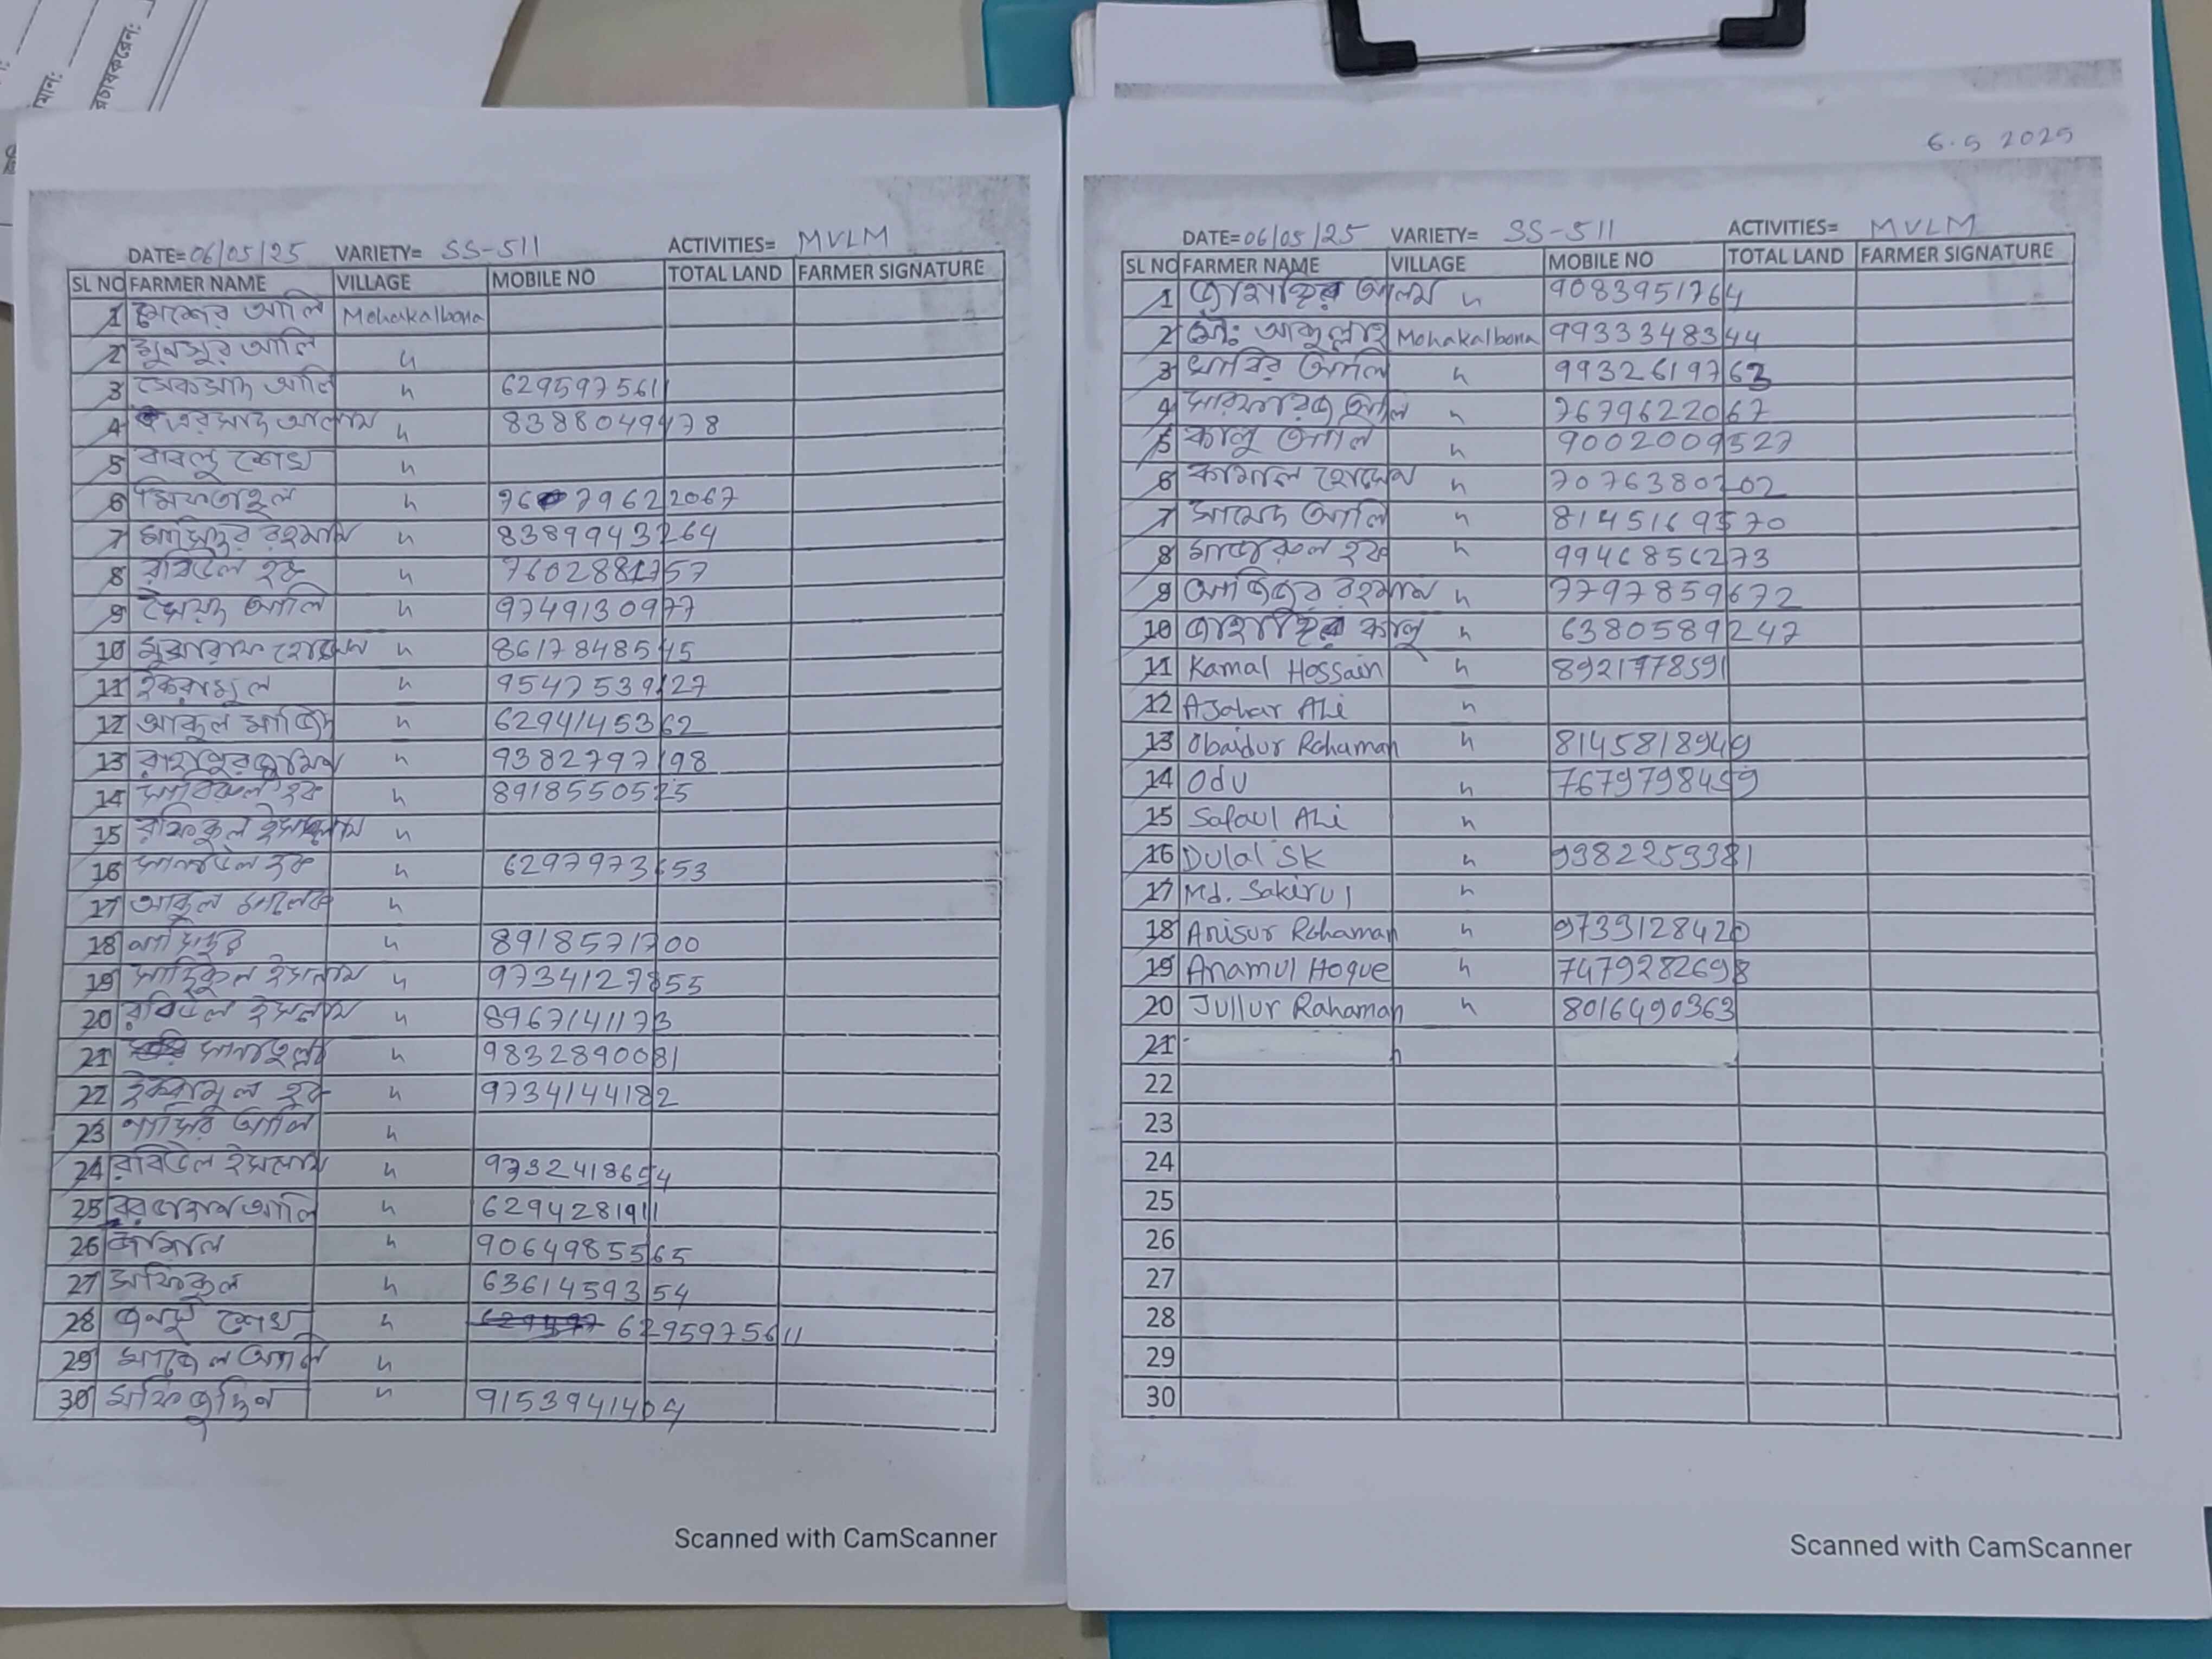 মান:
প্রচারকরেন:
DATE= 06/05/25 VARIETY= SS-511 ACTIVITIES= MVLM
SL NO FARMER NAME VILLAGE MOBILE NO TOTAL LAND FARMER SIGNATURE
1 আলি Mohakalbona
2 মুনসুর আলি "
3 আলি " 6295975611
4 এরসাদ আলাম " 8388049478
5 বাবলু শেখ "
6 মিফতাহুল " 7679622067
7 রহমান " 8389943264
8 রবিউল হক " 7602881757
9 সৈয়দ আলি " 9749130977
10 হোসেন " 8617848545
11 ইকরামুল " 9547539127
12 আব্দুল মাজিদ " 6294145362
13 " 9382797198
14 সাবিরুল হক " 8918550525
15 রফিকুল ইসলাম "
16 হক " 6297973653
17 আব্দুল মালেক "
18 " 8918571700
19 ইসলাম " 9734127855
20 রবিউল ইসলাম " 8967141173
21 সানাউল্লা " 9832890081
22 ইকরামুল হক " 9734144182
23 নাসির আলি "
24 রবিউল ইসলাম " 9732418654
25 আলি " 6294281911
26 জামাল " 9064985565
27 সফিকুল " 6361459354
28 শেখ " 6295975611
29 আলি "
30 মফিজুদ্দিন " 9153941404
Scanned with CamScanner
6.5 2025
DATE= 06/05/25 VARIETY= SS-511 ACTIVITIES= MVLM
SL NO FARMER NAME VILLAGE MOBILE NO TOTAL LAND FARMER SIGNATURE
1 জাহাঙ্গির আলম " 9083951764
2 মোঃ আব্দুল্লাহ Mohakalbona 9933348344
3 সাবির আলি " 9932619763
4 আলি " 7679622067
5 কালু আলি " 9002009527
6 কামাল হোসেন " 7076380202
7 সায়েদ আলি " 8145169570
8 হক " 9946856273
9 আজিজুর রহমান " 7797859672
10 জাহাঙ্গির কালু " 6380589247
11 Kamal Hossain " 8921778591
12 Ajahar Ali "
13 Obaidur Rahaman " 8145818949
14 Odu " 7679798459
15 Safaul Ali "
16 Dulal SK " 9382259381
17 Md. Sakirul "
18 Anisur Rahaman " 9733128420
19 Anamul Hoque " 7479282698
20 Jullur Rahaman " 8016490363
21 "
22
23
24
25
26
27
28
29
30
Scanned with CamScanner